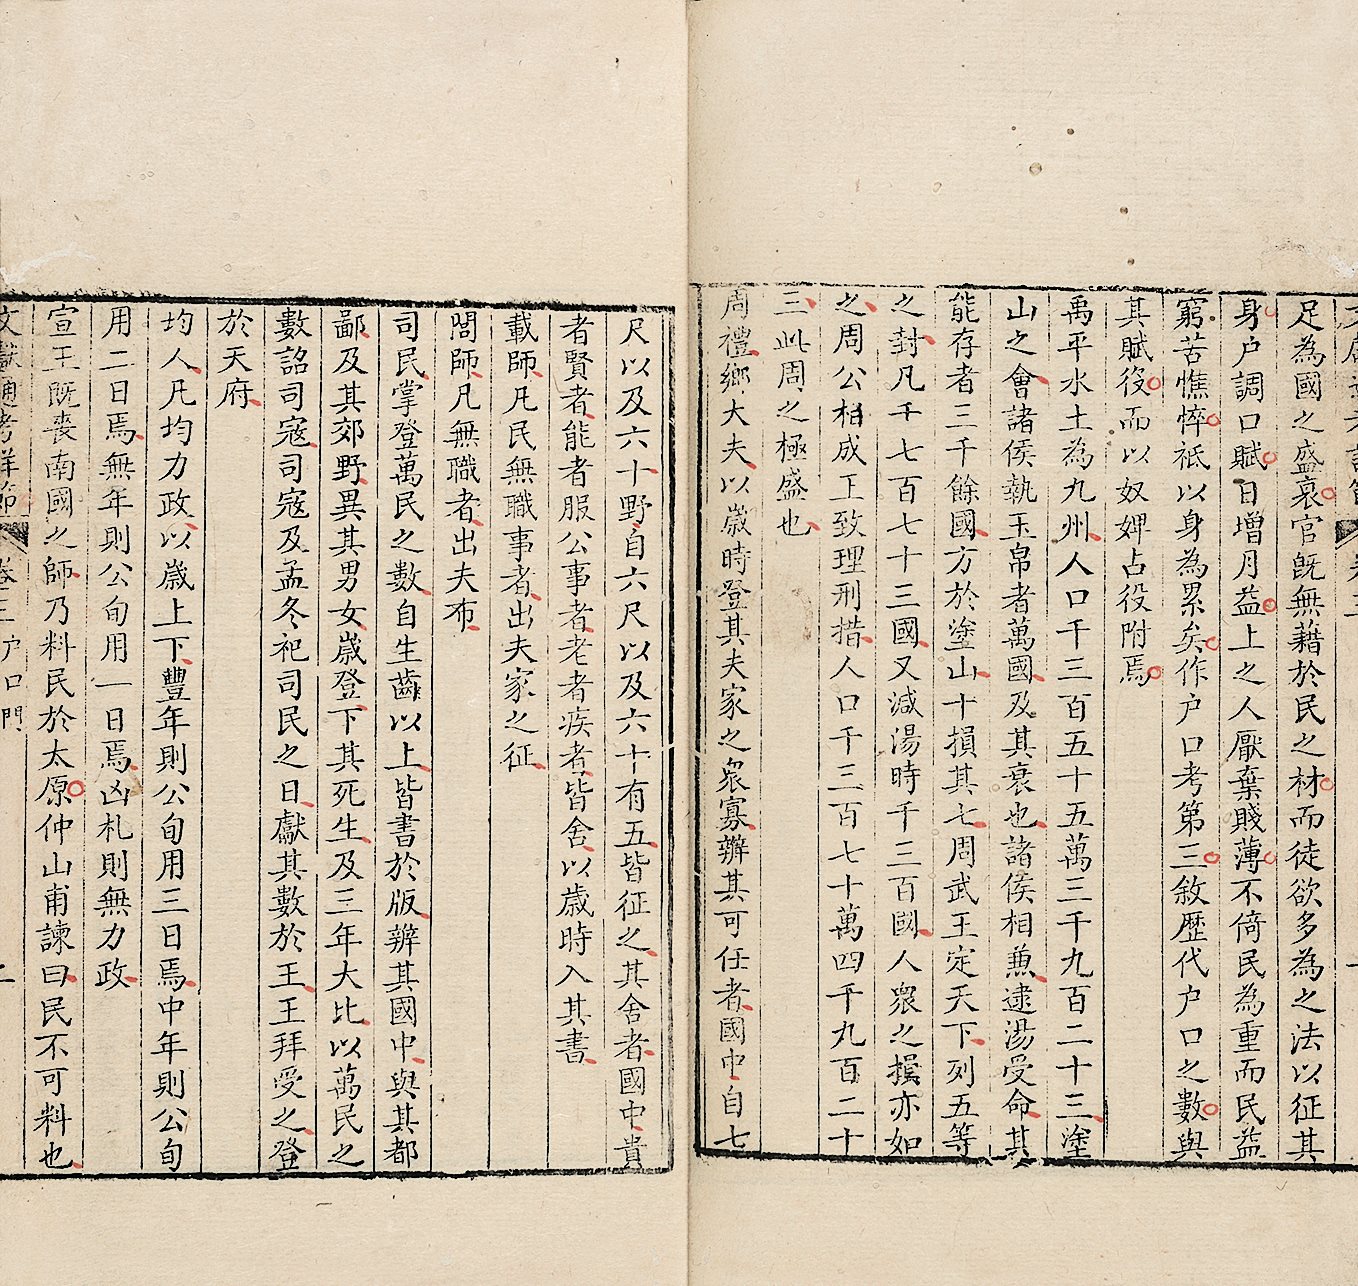 足為國之盛衰官既無藉於民之材而徒欲多為之法以征其
身户調口賦日增月益上之人厭棄賤薄不倚民為重而民益
窮苦憔悴祗以身為累矣作户口考第三敘歷代户口之數與
其賦役而以奴婢占役附焉
禹平水土為九州人口千三百五十五萬三千九百二十三塗
山之會諸侯執玉帛者萬國及其衰也諸侯相兼逮湯受命其
能存者三千餘國方於塗山十損其七周武王定天下列五等
之封凡千七百七十三國又減湯時千三百國人衆之損亦如
之周公相成王致理刑措人口千三百七十萬四千九百二十
三此周之極盛也
周禮鄉大夫以歲時登其夫家之衆寡辨其可任者國中自七
尺以及六十野自六尺以及六十有五皆征之其舍者國中貴
者賢者能者服公事者老者疾者皆舍以歲時入其書
載師凡民無職事者出夫家之征
閭師凡無職者出夫布
司民掌登萬民之數自生齒以上皆書於版辨其國中與其都
鄙及其郊野異其男女歲登下其死生及三年大比以萬民之
數詔司寇司寇及孟冬祀司民之日獻其數於王王拜受之登
於天府
均人凡均力政以歲上下豐年則公旬用三日焉中年則公旬
用二日焉無年則公旬用一日焉凶札則無力政
宣王既喪南國之師乃料民於太原仲山甫諫曰民不可料也
文獻通考詳節 卷三 户口門